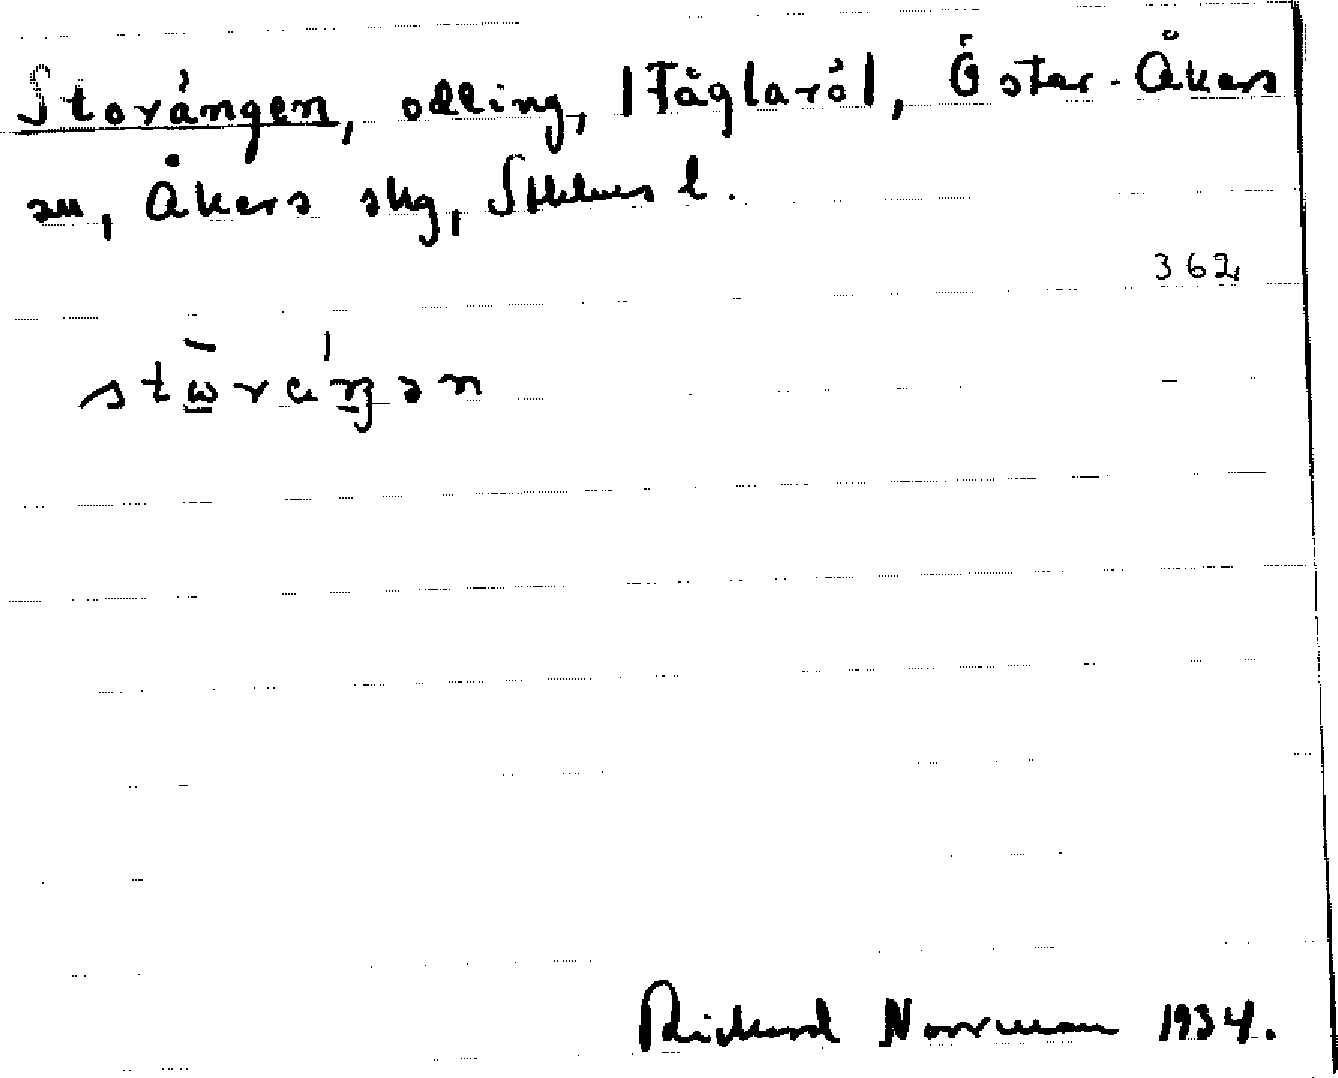 Storängen, odling, Fågelsröl, Öster-Åkers
sn, Åkers skg, Sthlms l.
362
Rickard Norrman 1934.